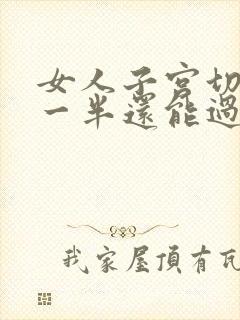 女人子宮切
一半還能過
我家屋頂有瓦